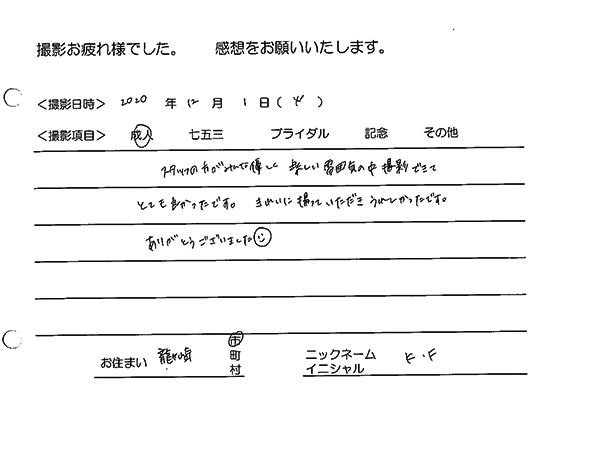 撮影お疲れ様でした。 感想をお願いいたします。
＜撮影日時＞ 2020 年 12 月 1 日(火)
＜撮影項目＞ 成人 七五三 ブライダル 記念 その他
スタッフの方がみんな優しく 楽しい雰囲気の中 撮影できて
とても良かったです。 きれいに撮っていただき うれしかったです。
ありがとうございました☺
お住まい 龍ケ崎 市 町 村 ニックネーム イニシャル K・F